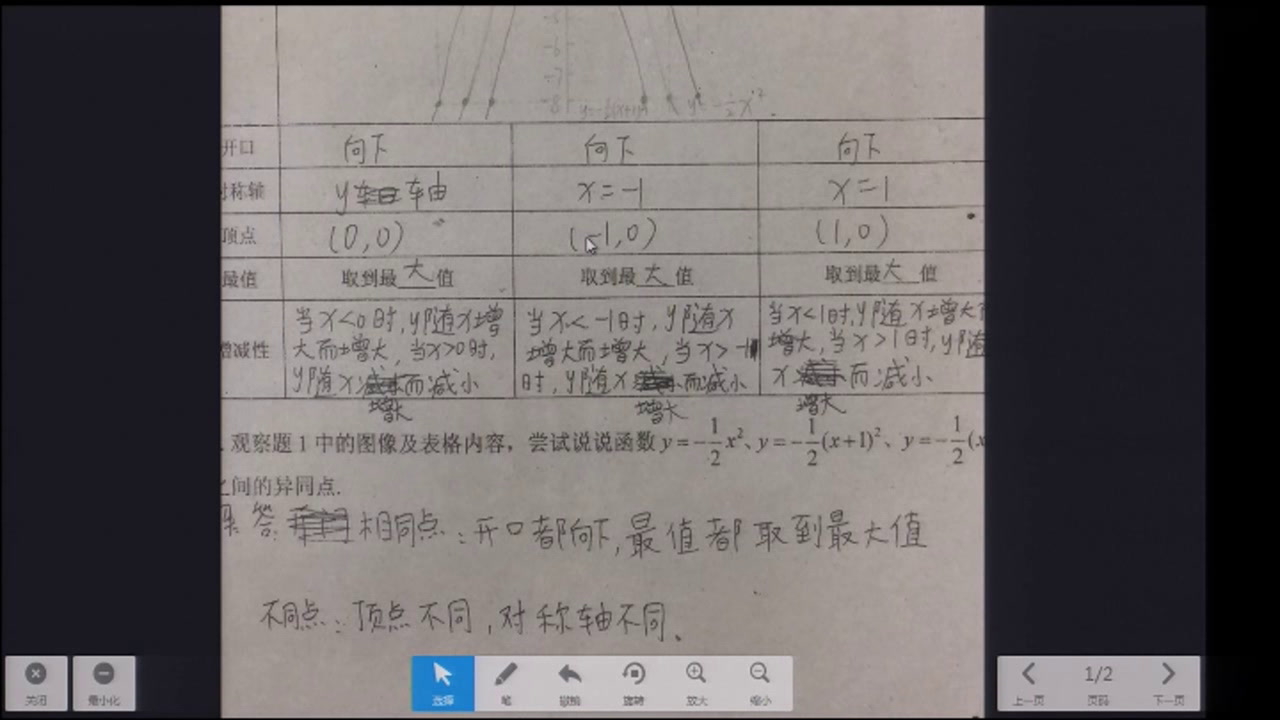 -6
-7
-8
开口 向下 向下 向下
对称轴 y 轴 x=-1 x=1
顶点 (0,0) (-1,0) (1,0)
最值 取到最大值 取到最大值 取到最大值
增减性
当x<0时,y随x增
大而增大,当x>0时,
y随x增大而减小
当x<-1时,y随x
增大而增大,当x>-1
时,y随x增大而减小
当x<1时,y随x增大而
增大,当x>1时,y随
x增大而减小
.观察题1中的图像及表格内容,尝试说说函数y=-1/2x²、y=-1/2(x+1)²、y=-1/2(x
之间的异同点.
答: 相同点:开口都向下,最值都取到最大值
不同点:顶点不同,对称轴不同.
关闭 最小化 选择 笔 撤销 旋转 放大 缩小 上一页 1/2 页码 下一页